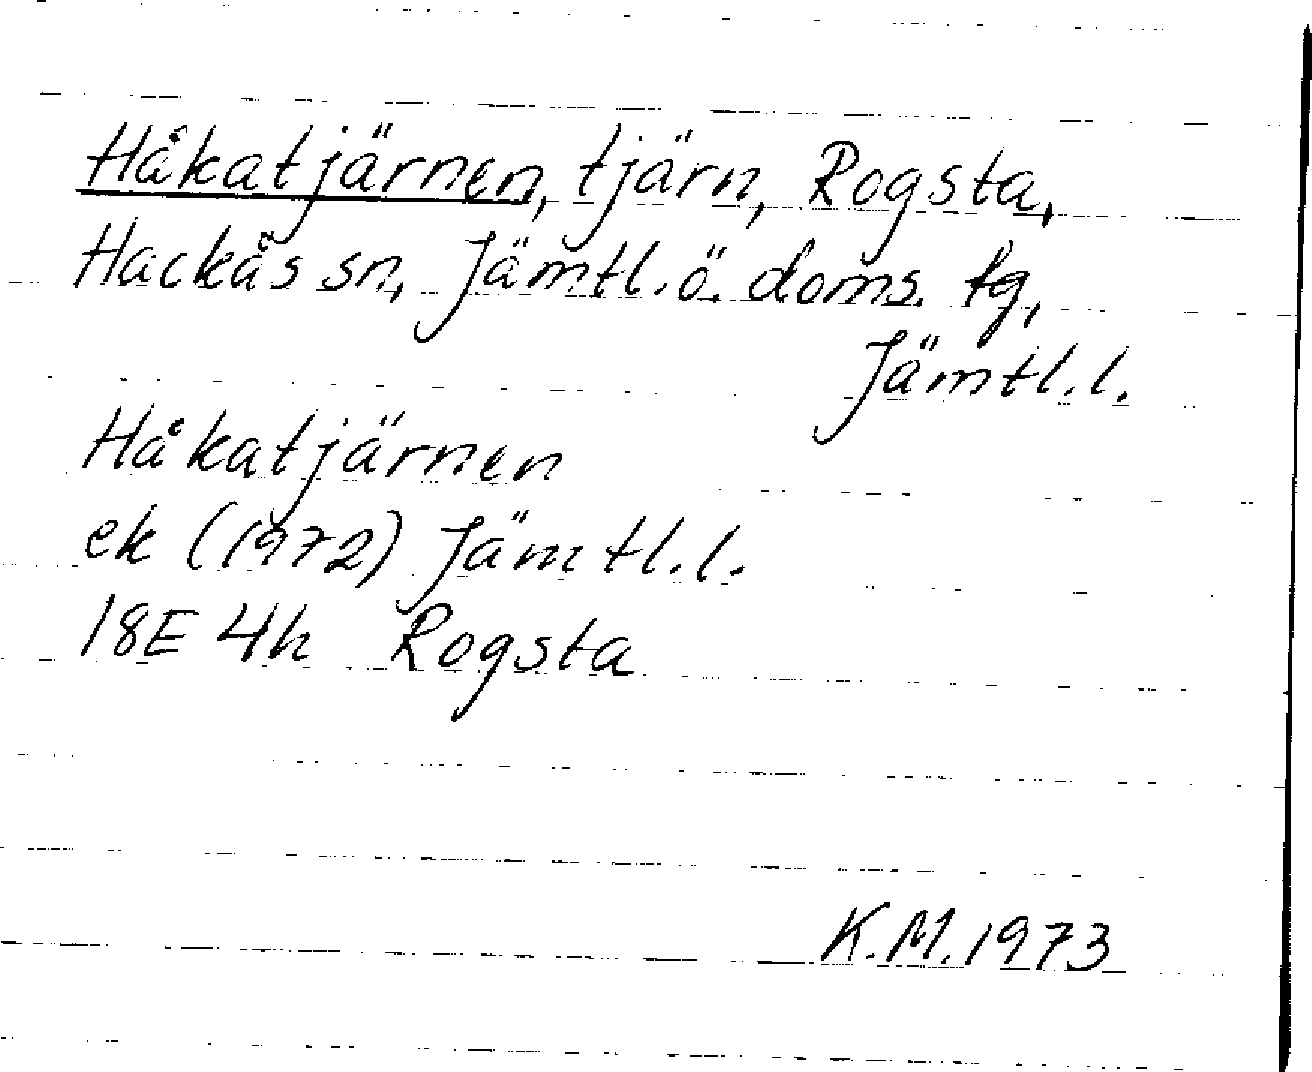 Håkatjärnen, tjärn, Rogsta,
Hackås sn, Jämtl.ö. doms. tg,
Jämtl.l.
Håkatjärnen
ek (1972) Jämtl.l.
18E 4h Rogsta
K.M.1973